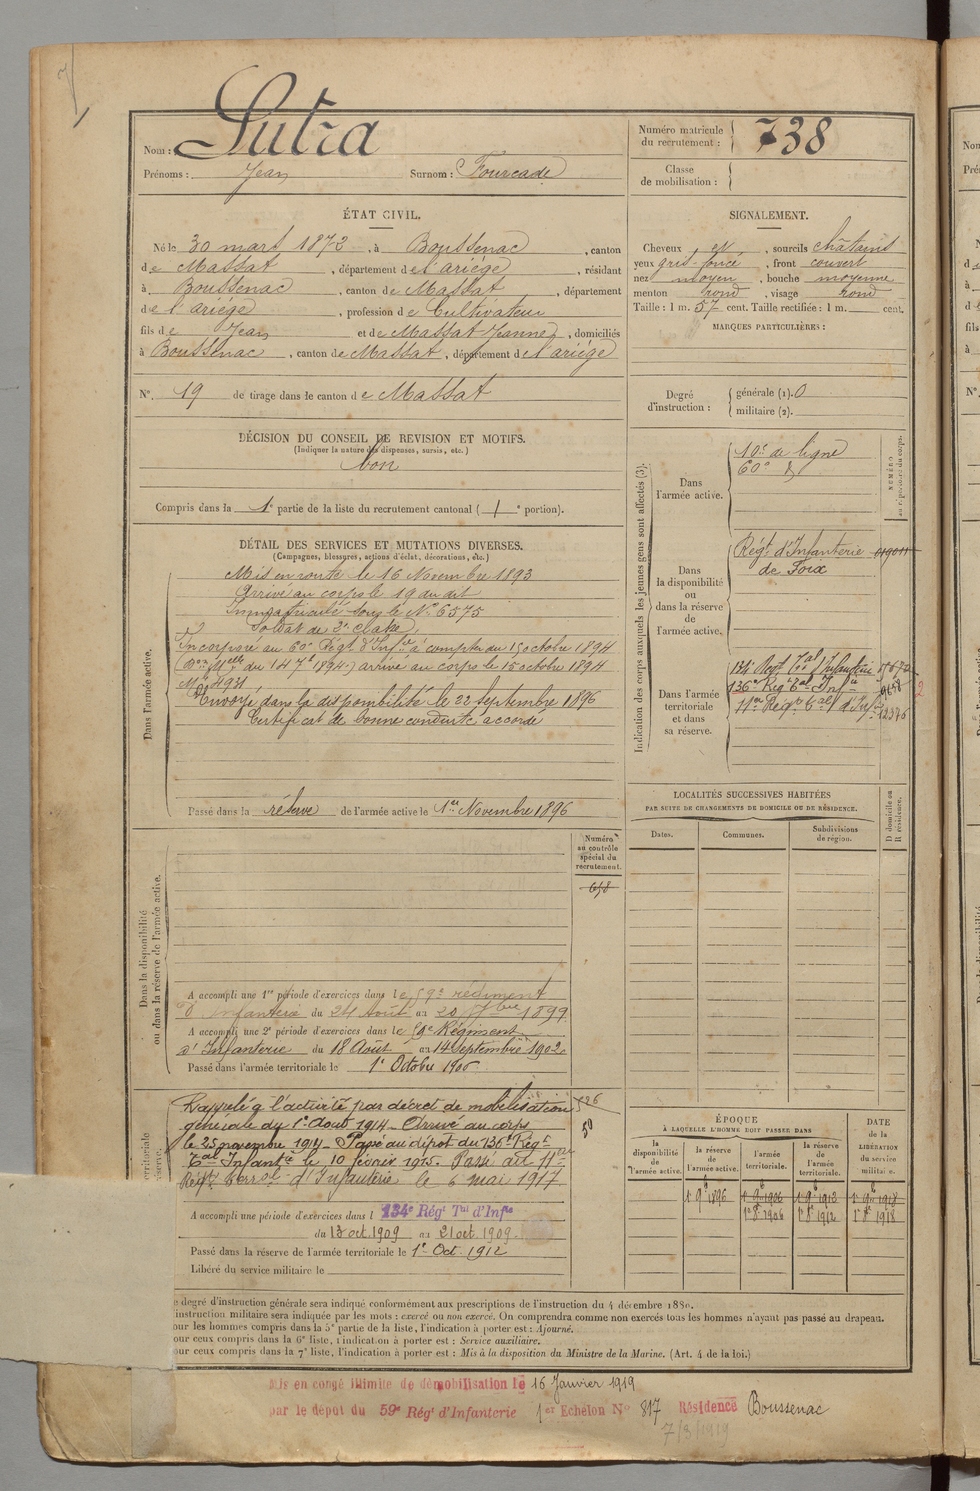 Nom : Sutra
Prénoms : Jean Surnom : Fourcade
Numéro matricule du recrutement : 738
Classe de mobilisation :
ÉTAT CIVIL.
Né le 30 mars 1872, à Boussenac, canton
de Massat, département de l'ariége, résidant
à Boussenac, canton de Massat, département
de l'ariége, profession de Cultivateur
fils de Jean et de Massat Jeanne, domiciliés
à Boussenac, canton de Massat, département de l'ariége
N°. 19 de tirage dans le canton de Massat
SIGNALEMENT.
Cheveux et, sourcils châtains
yeux gris-foncé, front couvert
nez moyen, bouche moyenne
menton rond, visage rond
Taille : 1 m. 57 cent. Taille rectifiée : 1 m. cent.
MARQUES PARTICULIÈRES :
Degré d'instruction : générale (1). 0
militaire (2).
DÉCISION DU CONSEIL DE REVISION ET MOTIFS.
(Indiquer la nature des dispenses, sursis, etc.)
bon
Compris dans la 1e partie de la liste du recrutement cantonal (1e portion).
DÉTAIL DES SERVICES ET MUTATIONS DIVERSES.
(Campagnes, blessures, actions d'éclat, décorations, etc.)
Dans l'armée active.
Mis en route le 16 Novembre 1893
Arrivé au corps le 19 du dit
Immatriculé sous le N° 6575
Soldat de 2e classe
Incorporé au 60e Régt d'Infie à compter du 15 octobre 1894
(Don Melle du 14 7bre 1894) arrivé au corps le 15 octobre 1894
Mle 4931
Envoyé dans la disponibilité le 22 septembre 1896
Certificat de bonne conduite accordé
Passé dans la réserve de l'armée active le 1er Novembre 1896
Indication des corps auxquels les jeunes gens sont affectés (3).
NUMÉRO au répertoire du corps.
Dans l'armée active.
10e de ligne
60e d
Dans la disponibilité ou dans la réserve de l'armée active.
Régt d'Infanterie
de Foix
Dans l'armée territoriale et dans sa réserve.
134e Regt Tal d'Infanterie
136e Régt Tal Infie
11er Régt Tal d'Inf
LOCALITÉS SUCCESSIVES HABITÉES
PAR SUITE DE CHANGEMENTS DE DOMICILE OU DE RÉSIDENCE.
Dates. Communes. Subdivisions de région. D domicile ou R résidence.
Dans la disponibilité ou dans la réserve de l'armée active.
Numéro au contrôle spécial du recrutement.
658
A accompli une 1re période d'exercices dans le 59e régiment
d'Infanterie du 24 Août au 20 7bre 1899
A accompli une 2e période d'exercices dans le 59e Régiment
d'Infanterie du 18 Août au 14 Septembre 1902
Passé dans l'armée territoriale le 1e Octobre 1906
Rappelé à l'activité par décret de mobilisation
générale du 1er Août 1914 - Arrivé au corps
le 25 novembre 1914 - Passé au dépôt du 136e Régt
Tal Infantie le 10 février 1915. Passé au 11er
Régt Terral d'Infanterie le 6 mai 1917
A accompli une période d'exercices dans l 134e Régt Tal d'Infie
du 13 oct. 1909 au 21 oct. 1909
Passé dans la réserve de l'armée territoriale le 1er Oct 1912
Libéré du service militaire le
ÉPOQUE
À LAQUELLE L'HOMME DOIT PASSER DANS
la disponibilité de l'armée active. la réserve de l'armée active. l'armée territoriale. la réserve de l'armée territoriale.
DATE de la LIBÉRATION du service militaire.
1 9bre 1896 1 9bre 1906 1 9bre 1912 1 9bre 1918
1er 8bre 1906 1er 8bre 1912 1er 8bre 1918
e degré d'instruction générale sera indiqué conformément aux prescriptions de l'instruction du 4 décembre 1889.
instruction militaire sera indiquée par les mots : exercé ou non exercé. On comprendra comme non exercés tous les hommes n'ayant pas passé au drapeau.
our les hommes compris dans la 5e partie de la liste, l'indication à porter est : Ajourné.
our ceux compris dans la 6e liste, l'indication à porter est : Service auxiliaire.
our ceux compris dans la 7e liste, l'indication à porter est : Mis à la disposition du Ministre de la Marine. (Art. 4 de la loi.)
Mis en congé illimité de démobilisation le 16 Janvier 1919
par le dépôt du 59e Régt d'Infanterie 1er Echelon N° 817 Résidence Boussenac
7/3/1919